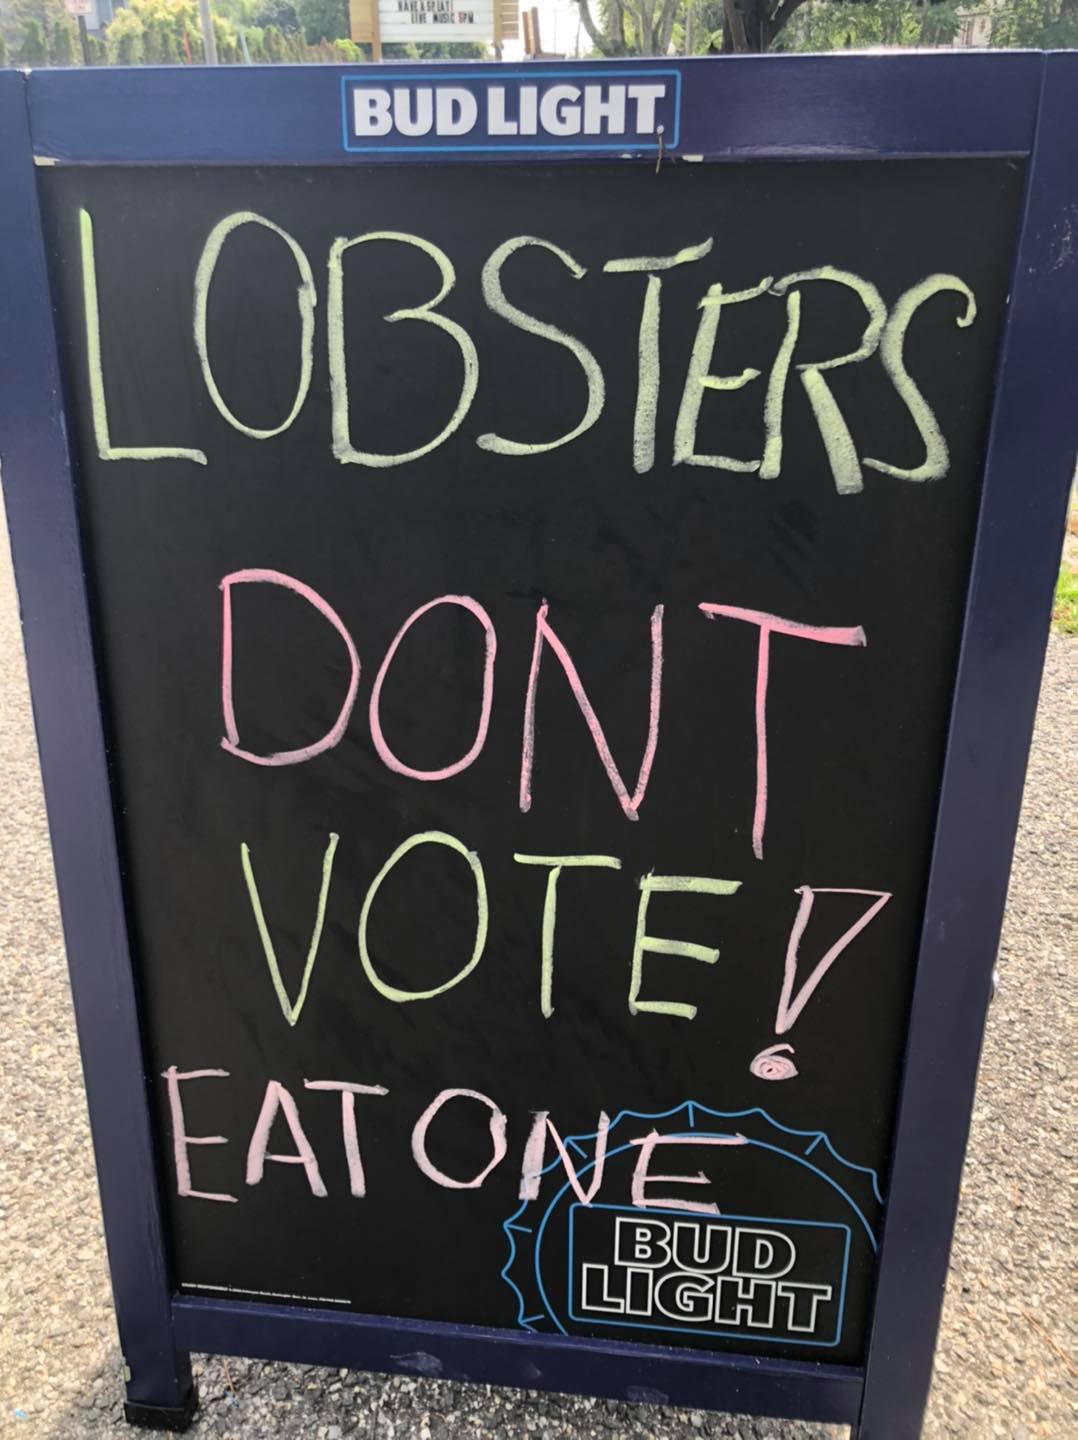 HAVE A SPLAT!
LIVE MUSIC 5PM
BUD LIGHT
LOBSTERS
DONT
VOTE!
EAT ONE
BUD
LIGHT